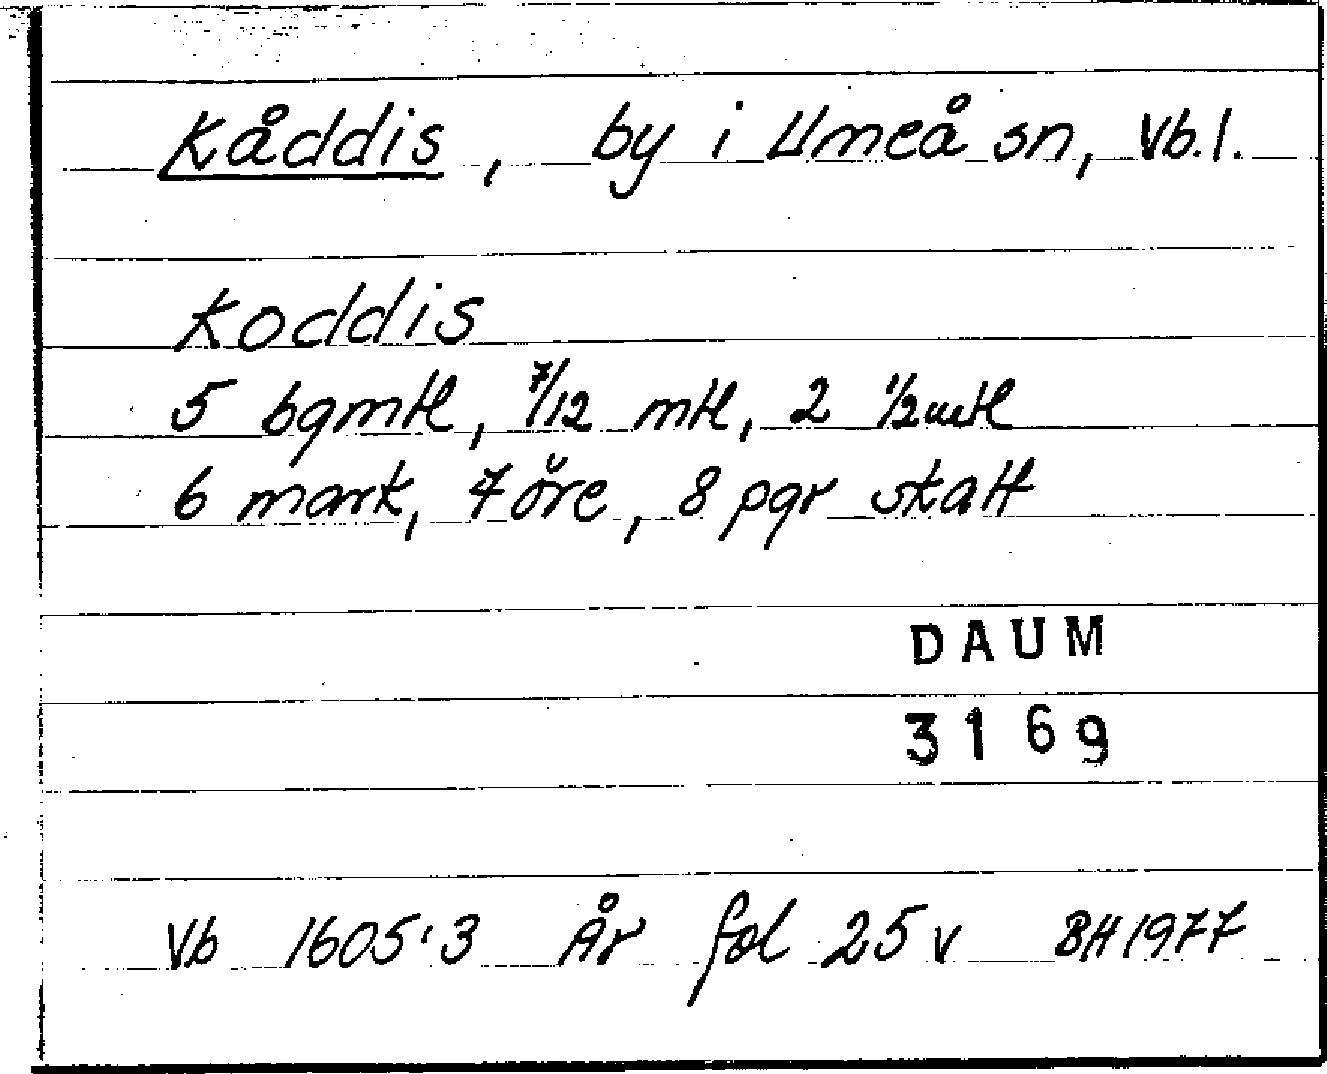 Kåddis, by i Umeå sn, Vb.l.
Koddis
5 bgmtl, 7/12 mtl, 2 1/2mtl
6 mark, 7 öre, 8 pgr skatt
DAUM
3169
Vb 1605:3 År fol 25 v BH 1977